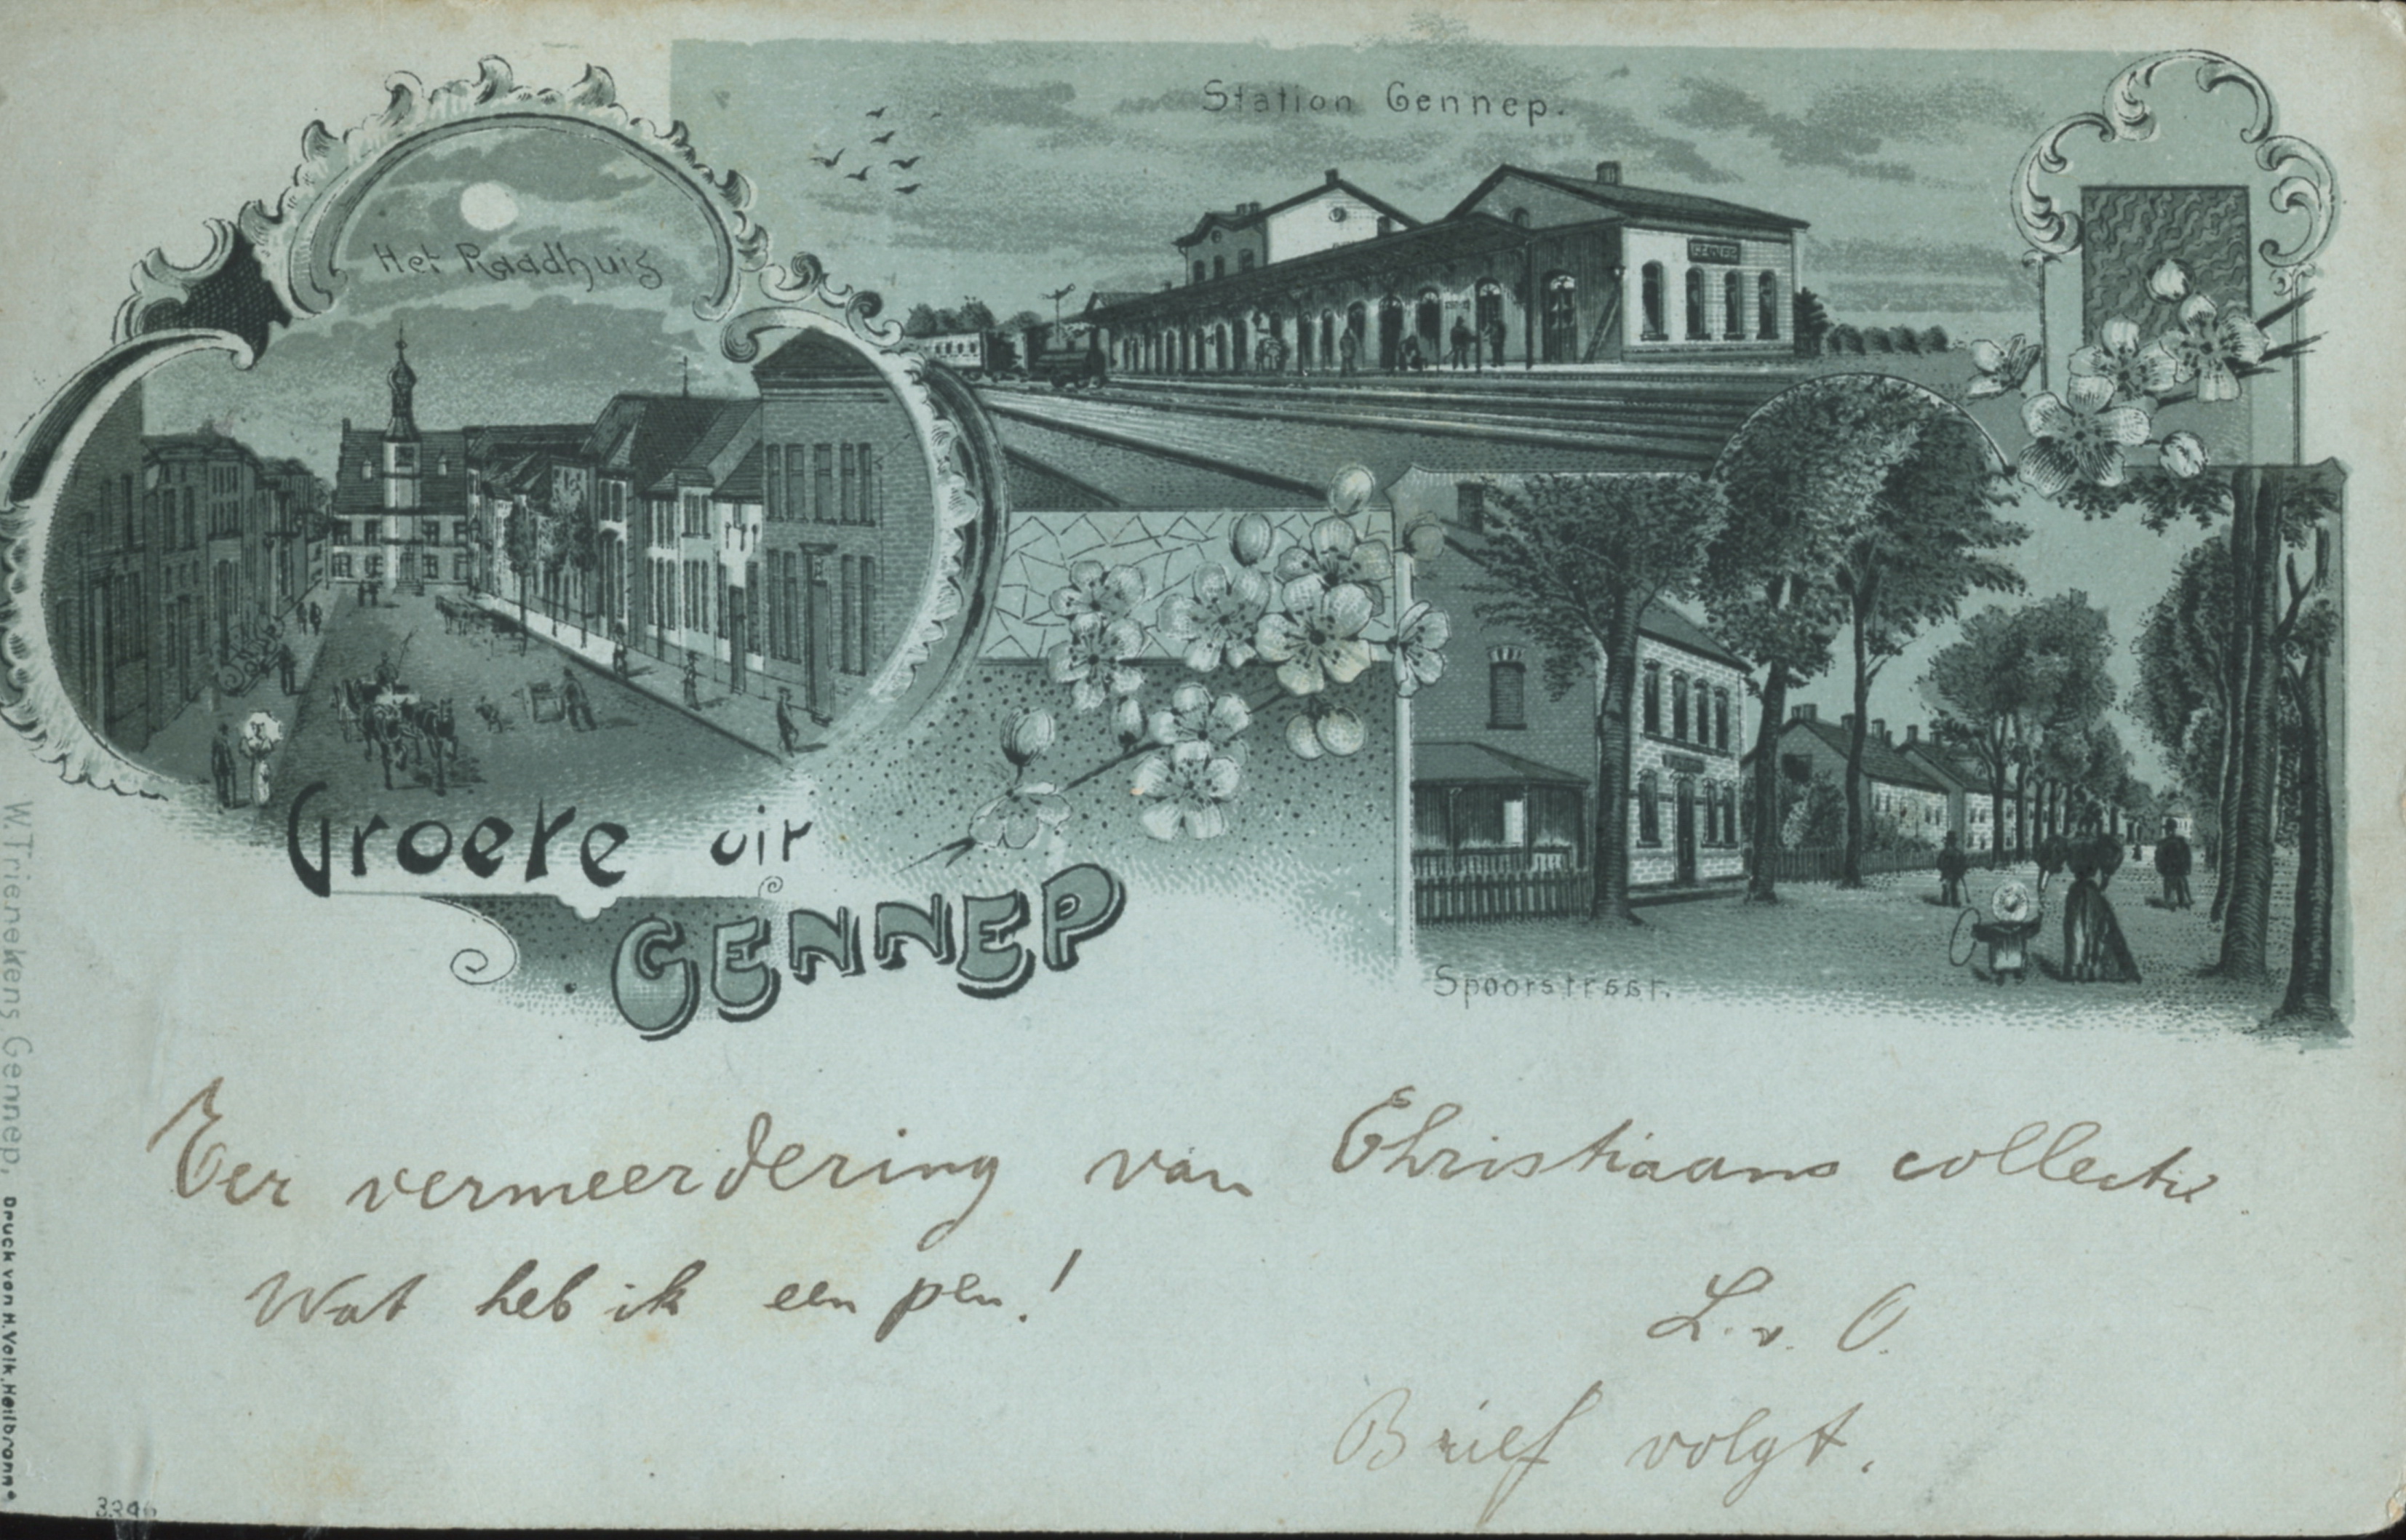 Station Gennep.
Het Raadhuis
GENNEP
Groete uit
GENNEP
Spoorstraat.
Ter vermeerdering van Christiaans collectie.
Wat heb ik een pen!
L. v. O.
Brief volgt.
W. Trienekens, Gennep, Druck von H. Volk, Heilbronn
3346